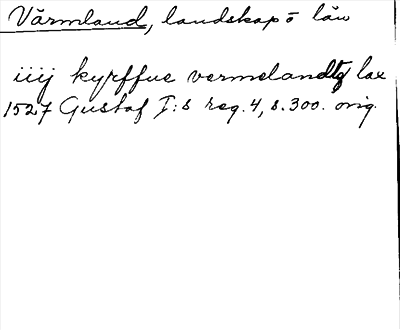 Värmland, landskap o län
iiij kyrffue vermelandtz lax
1527 Gustaf I:s reg. 4, s. 300. orig.